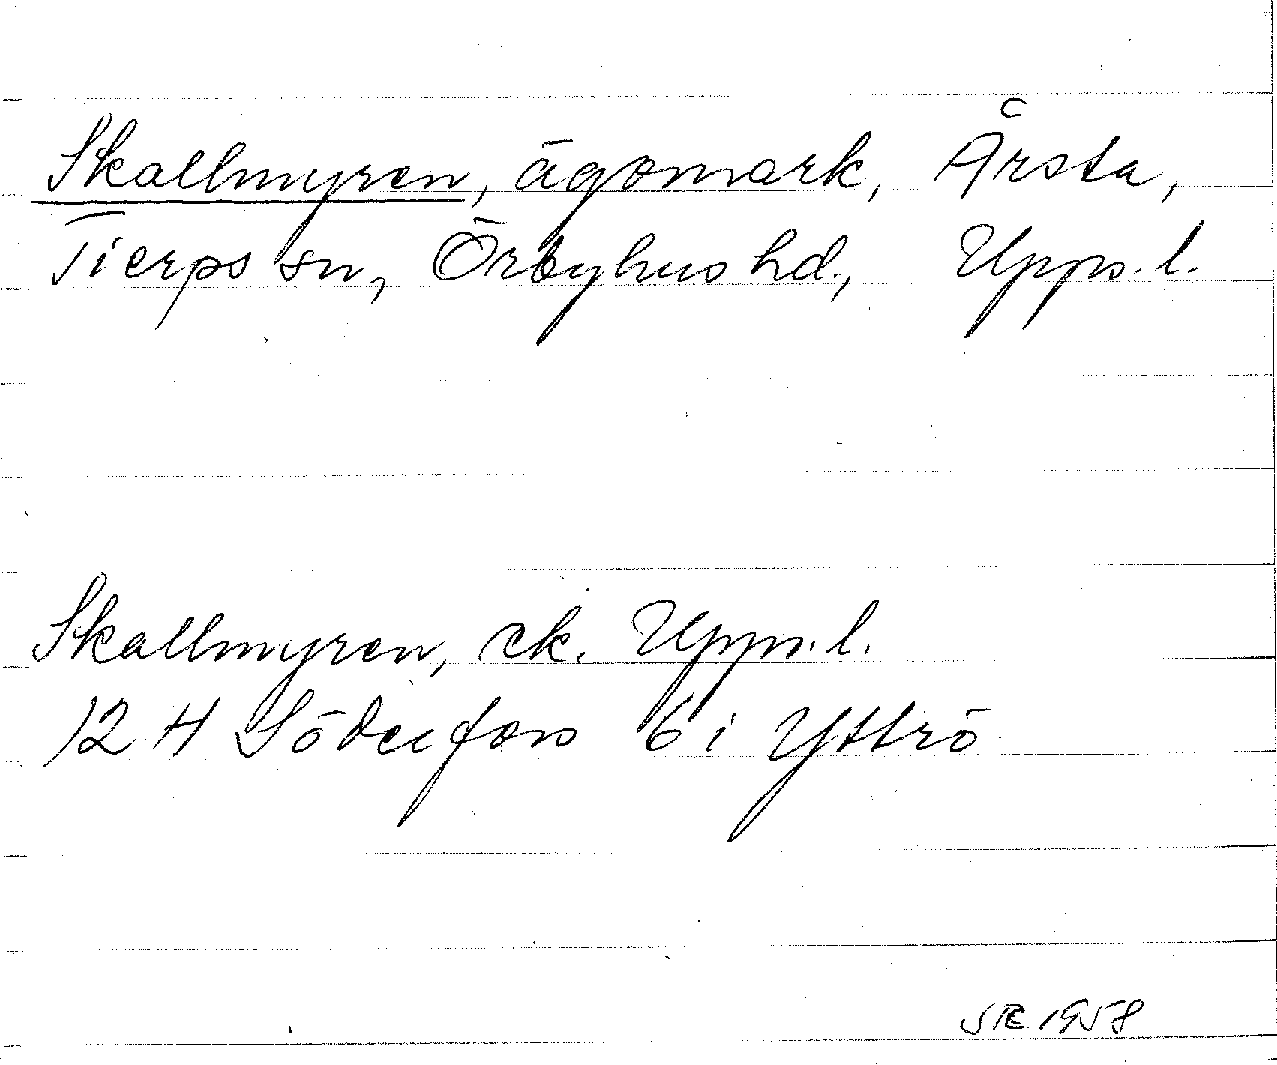 Skallmyren, ägomark, Årsta,
Tierps sn, Örbyhus hd., Upps.l.
Skallmyren, ek. Upps.l.
12 H Söderfors 6 i Yttrö
1958